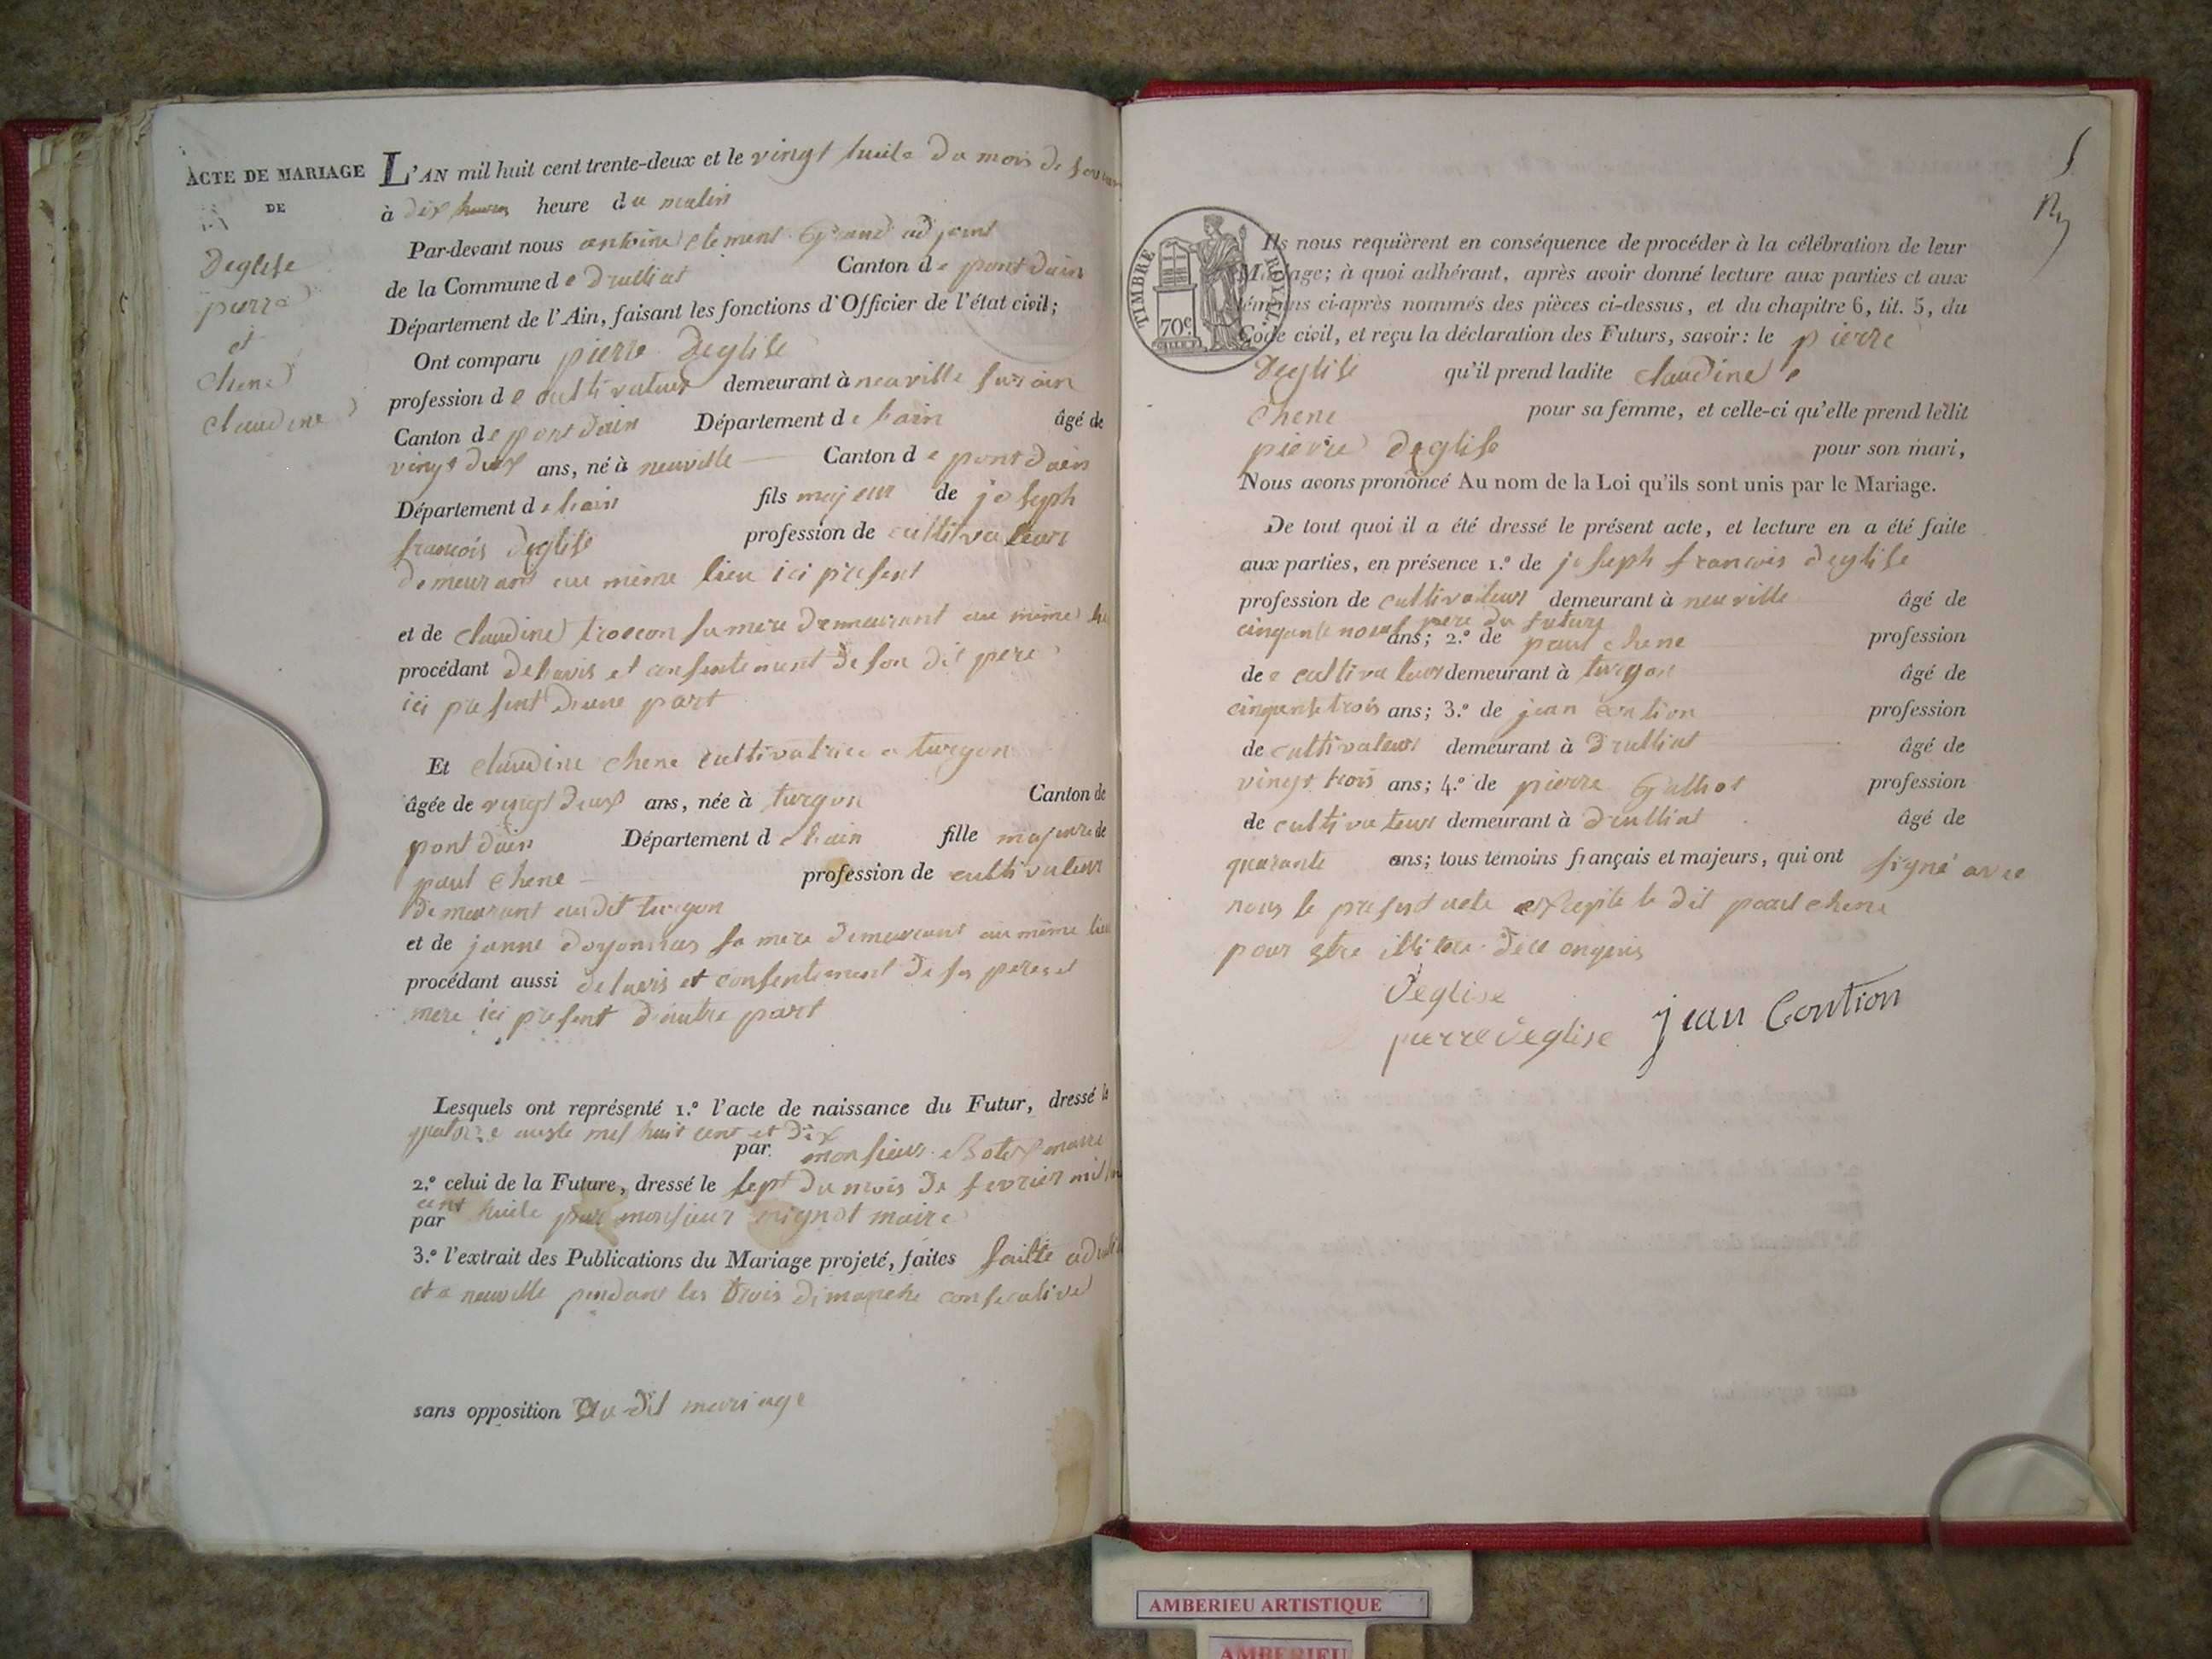 ACTE DE MARIAGE
DE
Deglise
pierre
et
chene
claudine
L'AN mil huit cent trente-deux et le vingt huite du mois de
à dix heures heure du matin
Par-devant nous antoine clement adjoint
de la Commune de Druilliat Canton de pont dain
Département de l'Ain, faisant les fonctions d'Officier de l'état civil;
Ont comparu pierre Deglise
profession de cultivateur demeurant à neuville sur ain
Canton de pont dain Département de lain âgé de
vingt deux ans, né à neuville Canton de pont dain
Département de lain fils majeur de joseph
francois deglise profession de cultivateur
demeurant au même lieu ici présent
et de claudine trocon sa mere demeurant au même
procédant delavis et consentement de son dit pere
ici present dune part
Et claudine chene cultivatrice a turgon
âgée de vingt deux ans, née à turgon Canton de
pont dain Département de lain fille majeure de
paul chene profession de cultivateur
demeurant audit turgon
et de janne doyonnas sa mere demeurant au même lieu
procédant aussi delavis et consentement de ses peres et
mere ici present dautre part
Lesquels ont représenté 1.º l'acte de naissance du Futur, dressé le
quatorze auste mil huit cent et dix
par monsieur maire
2.º celui de la Future, dressé le sept du mois de fevrier mil
cent huite par monsieur maire
par
3.º l'extrait des Publications du Mariage projeté, faites faitte
et a neuville pendant les trois dimanche consecutive
sans opposition au dit mariage
TIMBRE ROYAL
70c
Ils nous requièrent en conséquence de procéder à la célébration de leur
Mariage; à quoi adhérant, après avoir donné lecture aux parties et aux
témoins ci-après nommés des pièces ci-dessus, et du chapitre 6, tit. 5, du
Code civil, et reçu la déclaration des Futurs, savoir: le pierre
deglise qu'il prend ladite claudine
chene pour sa femme, et celle-ci qu'elle prend ledit
pierre deglise pour son mari,
Nous avons prononcé Au nom de la Loi qu'ils sont unis par le Mariage.
De tout quoi il a été dressé le présent acte, et lecture en a été faite
aux parties, en présence 1.º de joseph francois deglise
profession de cultivateur demeurant à neuville âgé de
cinquante noeuf pere du future
ans; 2.º de paul chene profession
de cultivateur demeurant à turgon âgé de
cinquante trois ans; 3.º de jean contion profession
de cultivateur demeurant à druilliat âgé de
vingt trois ans; 4.º de pierre profession
de cultivateur demeurant à druilliat âgé de
quarante ans; tous témoins français et majeurs, qui ont signé avec
nous le present acte le dit paul chene
pour
Deglise
pierre deglise jean Contion
AMBERIEU ARTISTIQUE
AMBERIEU